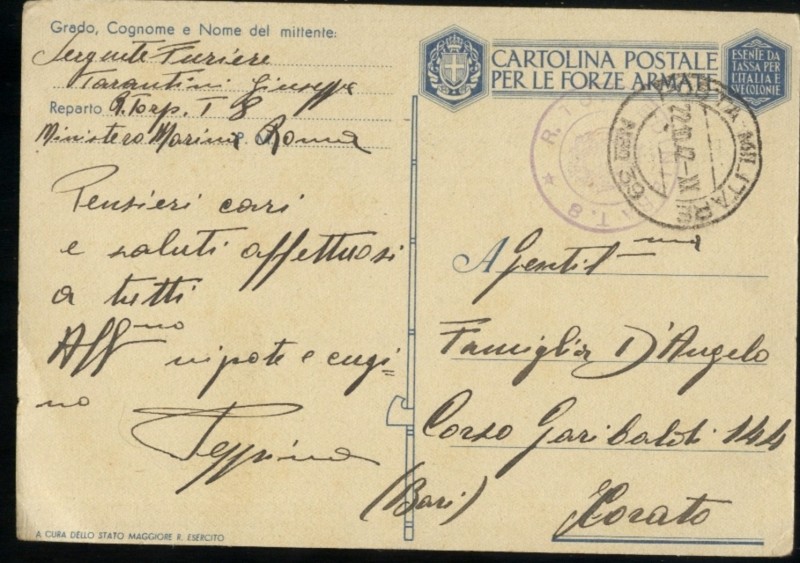 Grado, Cognome e Nome del mittente:
Sergente Furiere
Tarantini Giuseppe
Reparto R. Torp. T 8
Ministero Marina Roma
Pensieri cari
e saluti affettuosi
a tutti
Aff.mo nipote e cugi=
no
Peppino
A CURA DELLO STATO MAGGIORE R. ESERCITO
CARTOLINA POSTALE
PER LE FORZE ARMATE
ESENTE DA
TASSA PER
L'ITALIA E
SUE COLONIE
POSTA MILITARE
22.10.42-XX
R. TORP. T. 8
A Gentil.ma
Famiglia D'Angelo
Corso Garibaldi 144
(Bari) Corato